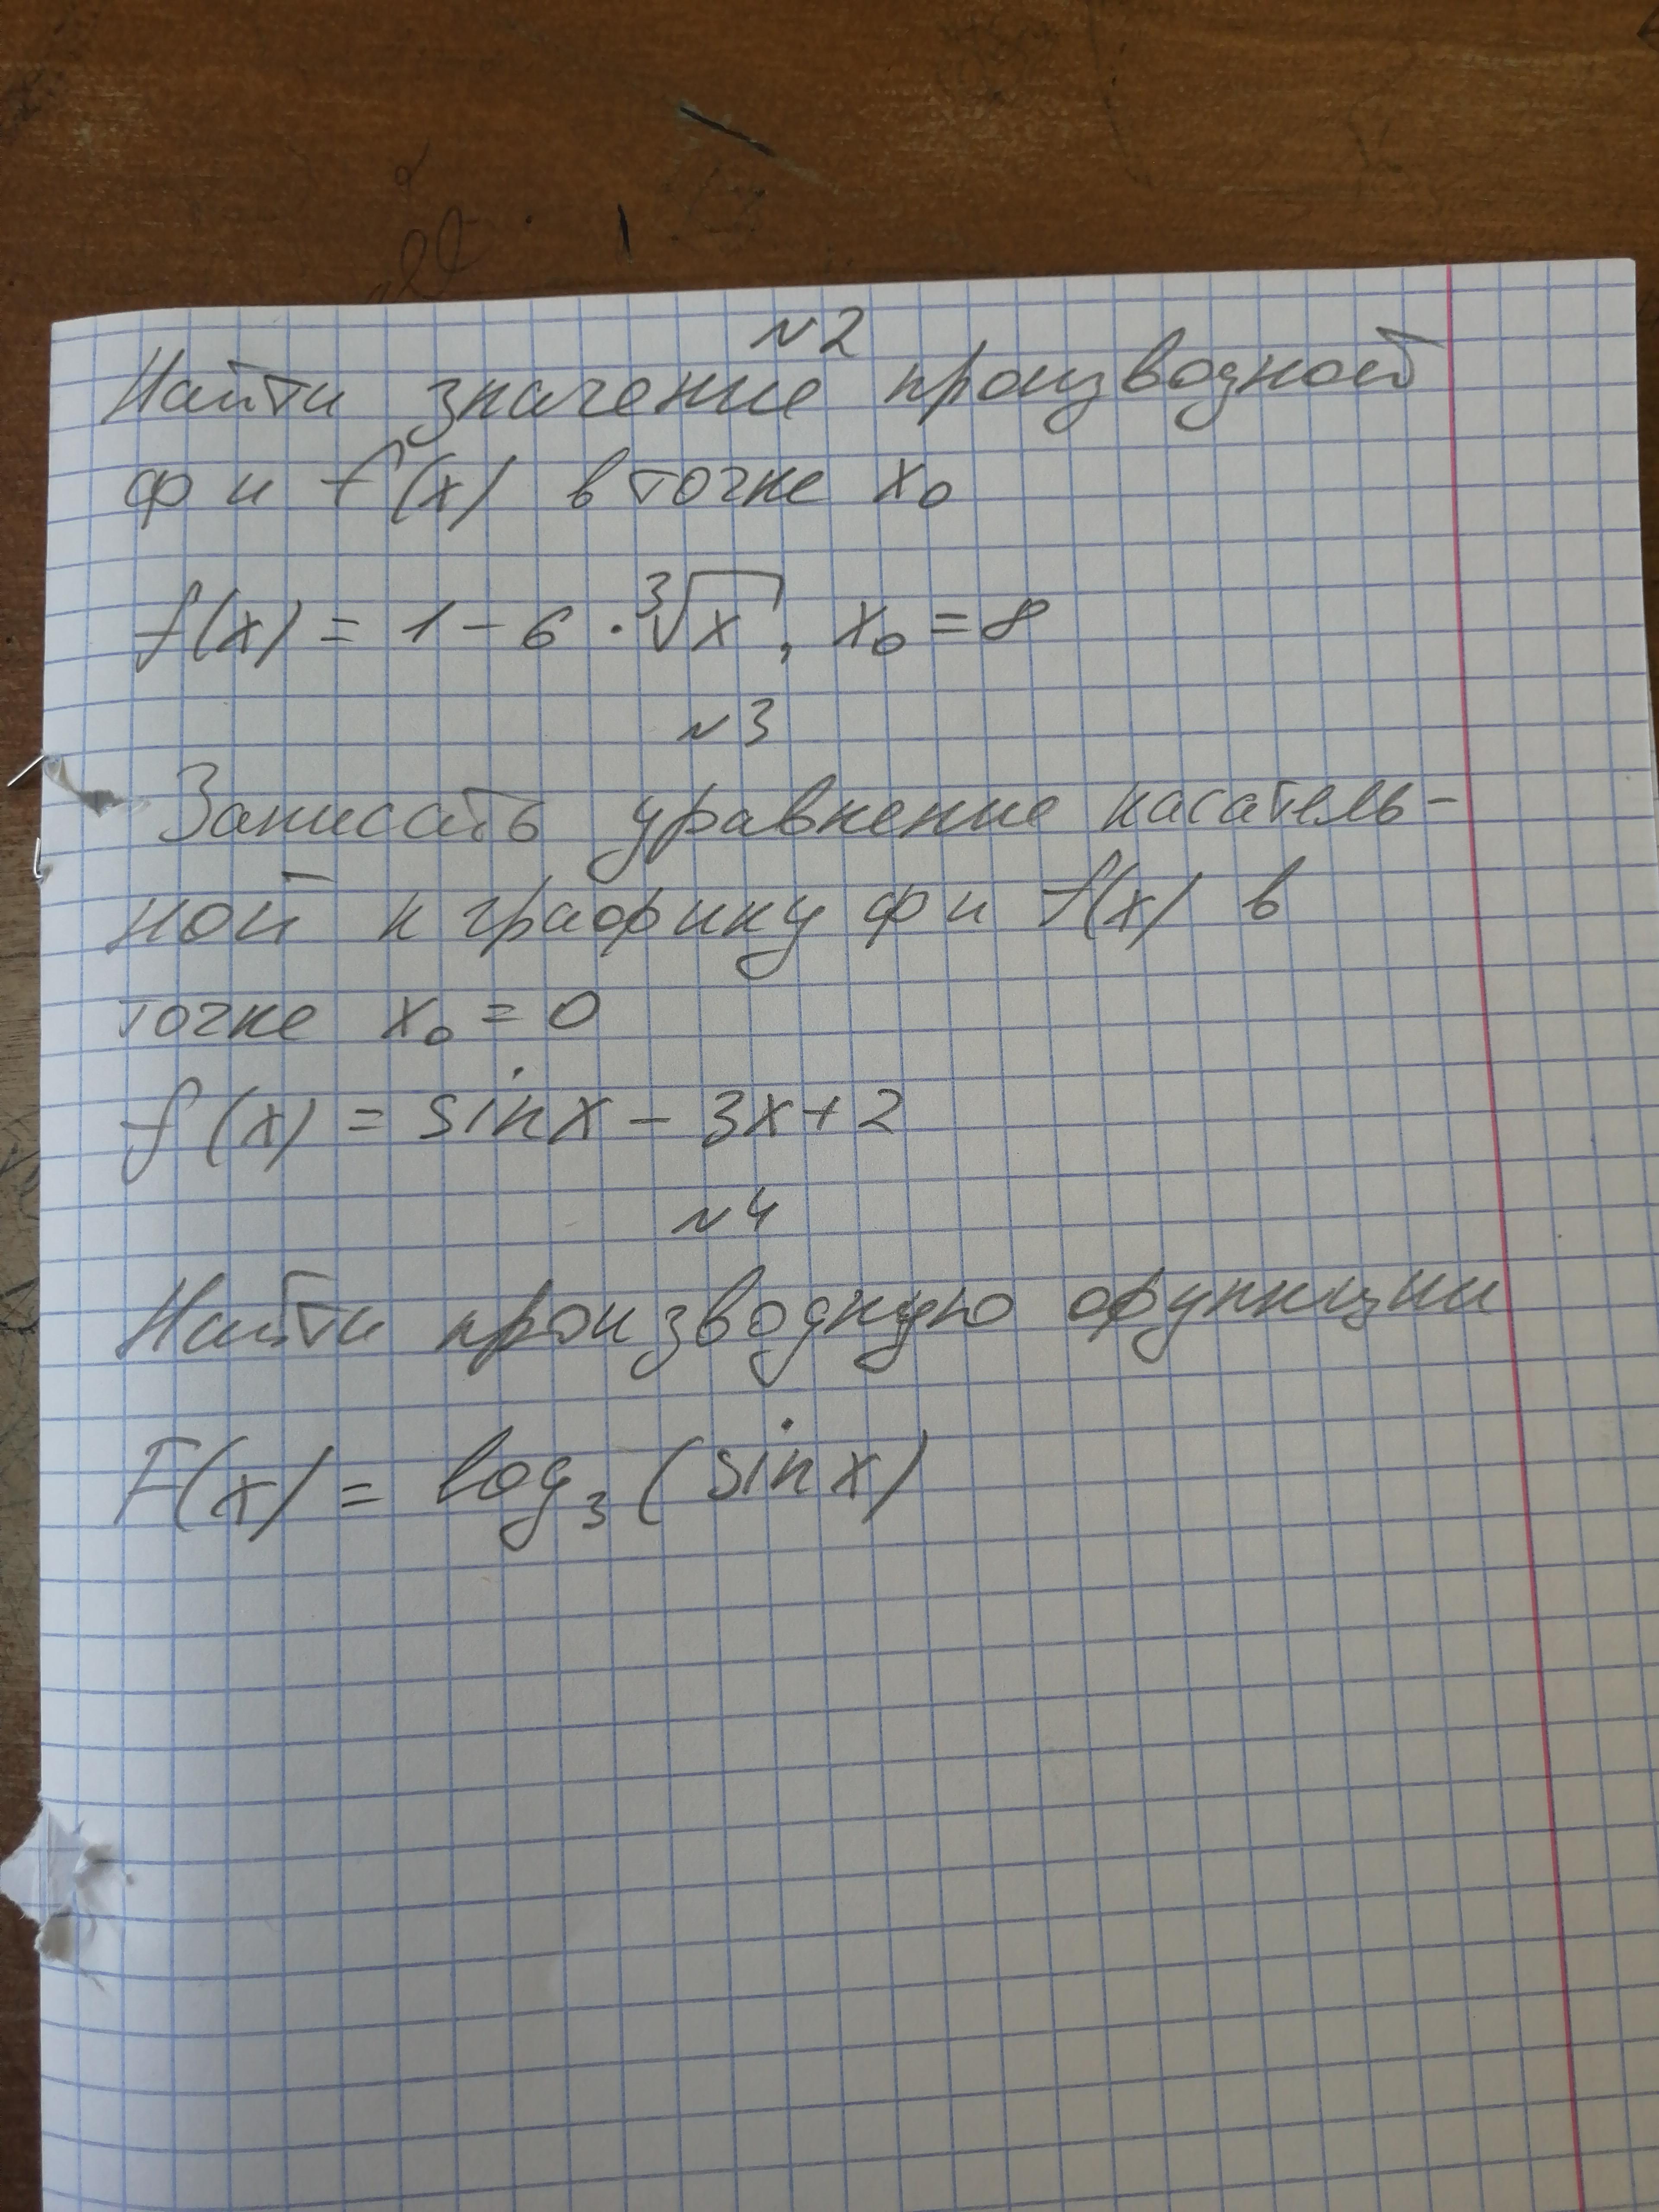 №2
Найти значение производной
ф и f(x) в точке x₀
f(x) = 1 - 6 · ³√x, x₀ = 8
№3
Записать уравнение касатель-
ной к графику ф и f(x) в
точке x₀ = 0
f(x) = sin x - 3x + 2
№4
Найти производную функции
F(x) = log₃(sin x)